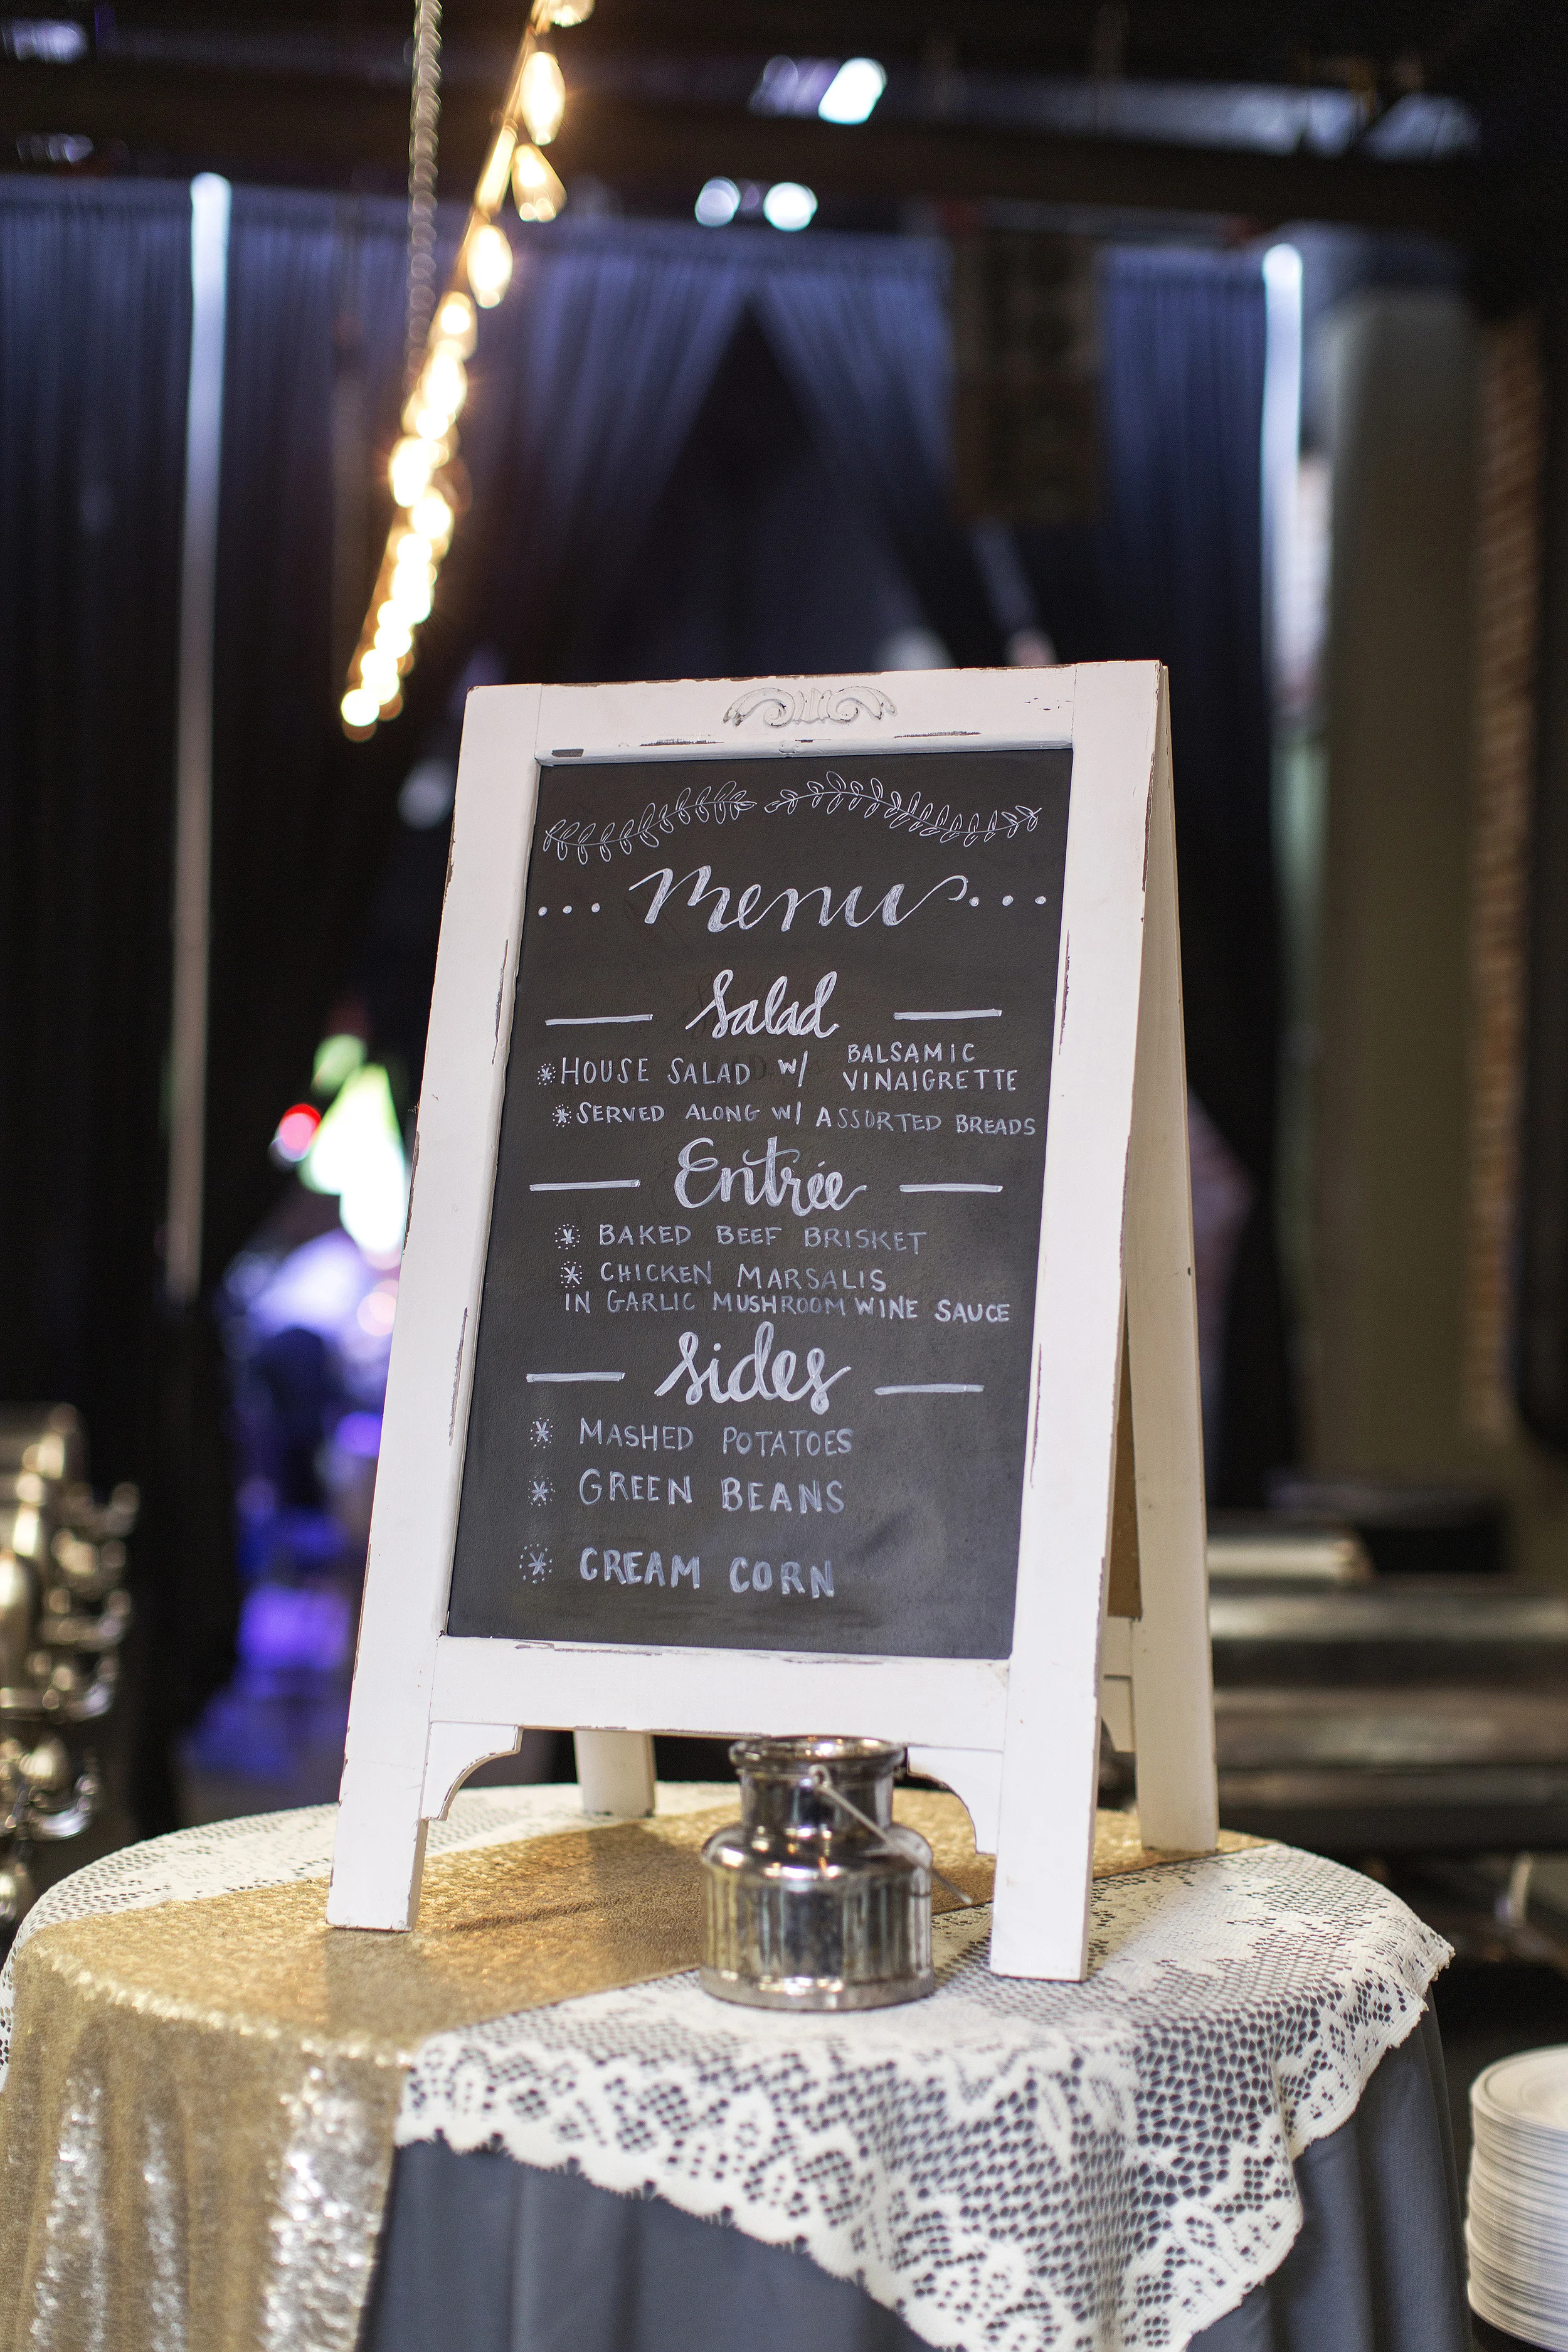 ... Menu ...
Salad
*HOUSE SALAD W/ BALSAMIC
VINAIGRETTE
*SERVED ALONG W/ ASSORTED BREADS
Entrée
* BAKED BEEF BRISKET
* CHICKEN MARSALIS
IN GARLIC MUSHROOM WINE SAUCE
Sides
* MASHED POTATOES
* GREEN BEANS
* CREAM CORN